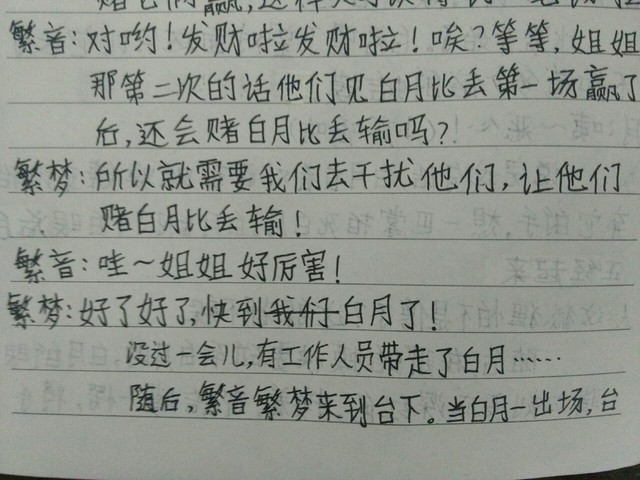 赌它们赢,这样
繁音:对哟!发财啦发财啦!唉?等等,姐姐
那第二次的话他们见白月比丢第一场赢了
后,还会赌白月比丢输吗?
繁梦:所以就需要我们去干扰他们,让他们
赌白月比丢输!
繁音:哇~姐姐好厉害!
繁梦:好了好了,快到我们白月了!
没过一会儿,有工作人员带走了白月……
随后,繁音繁梦来到台下。当白月一出场,台